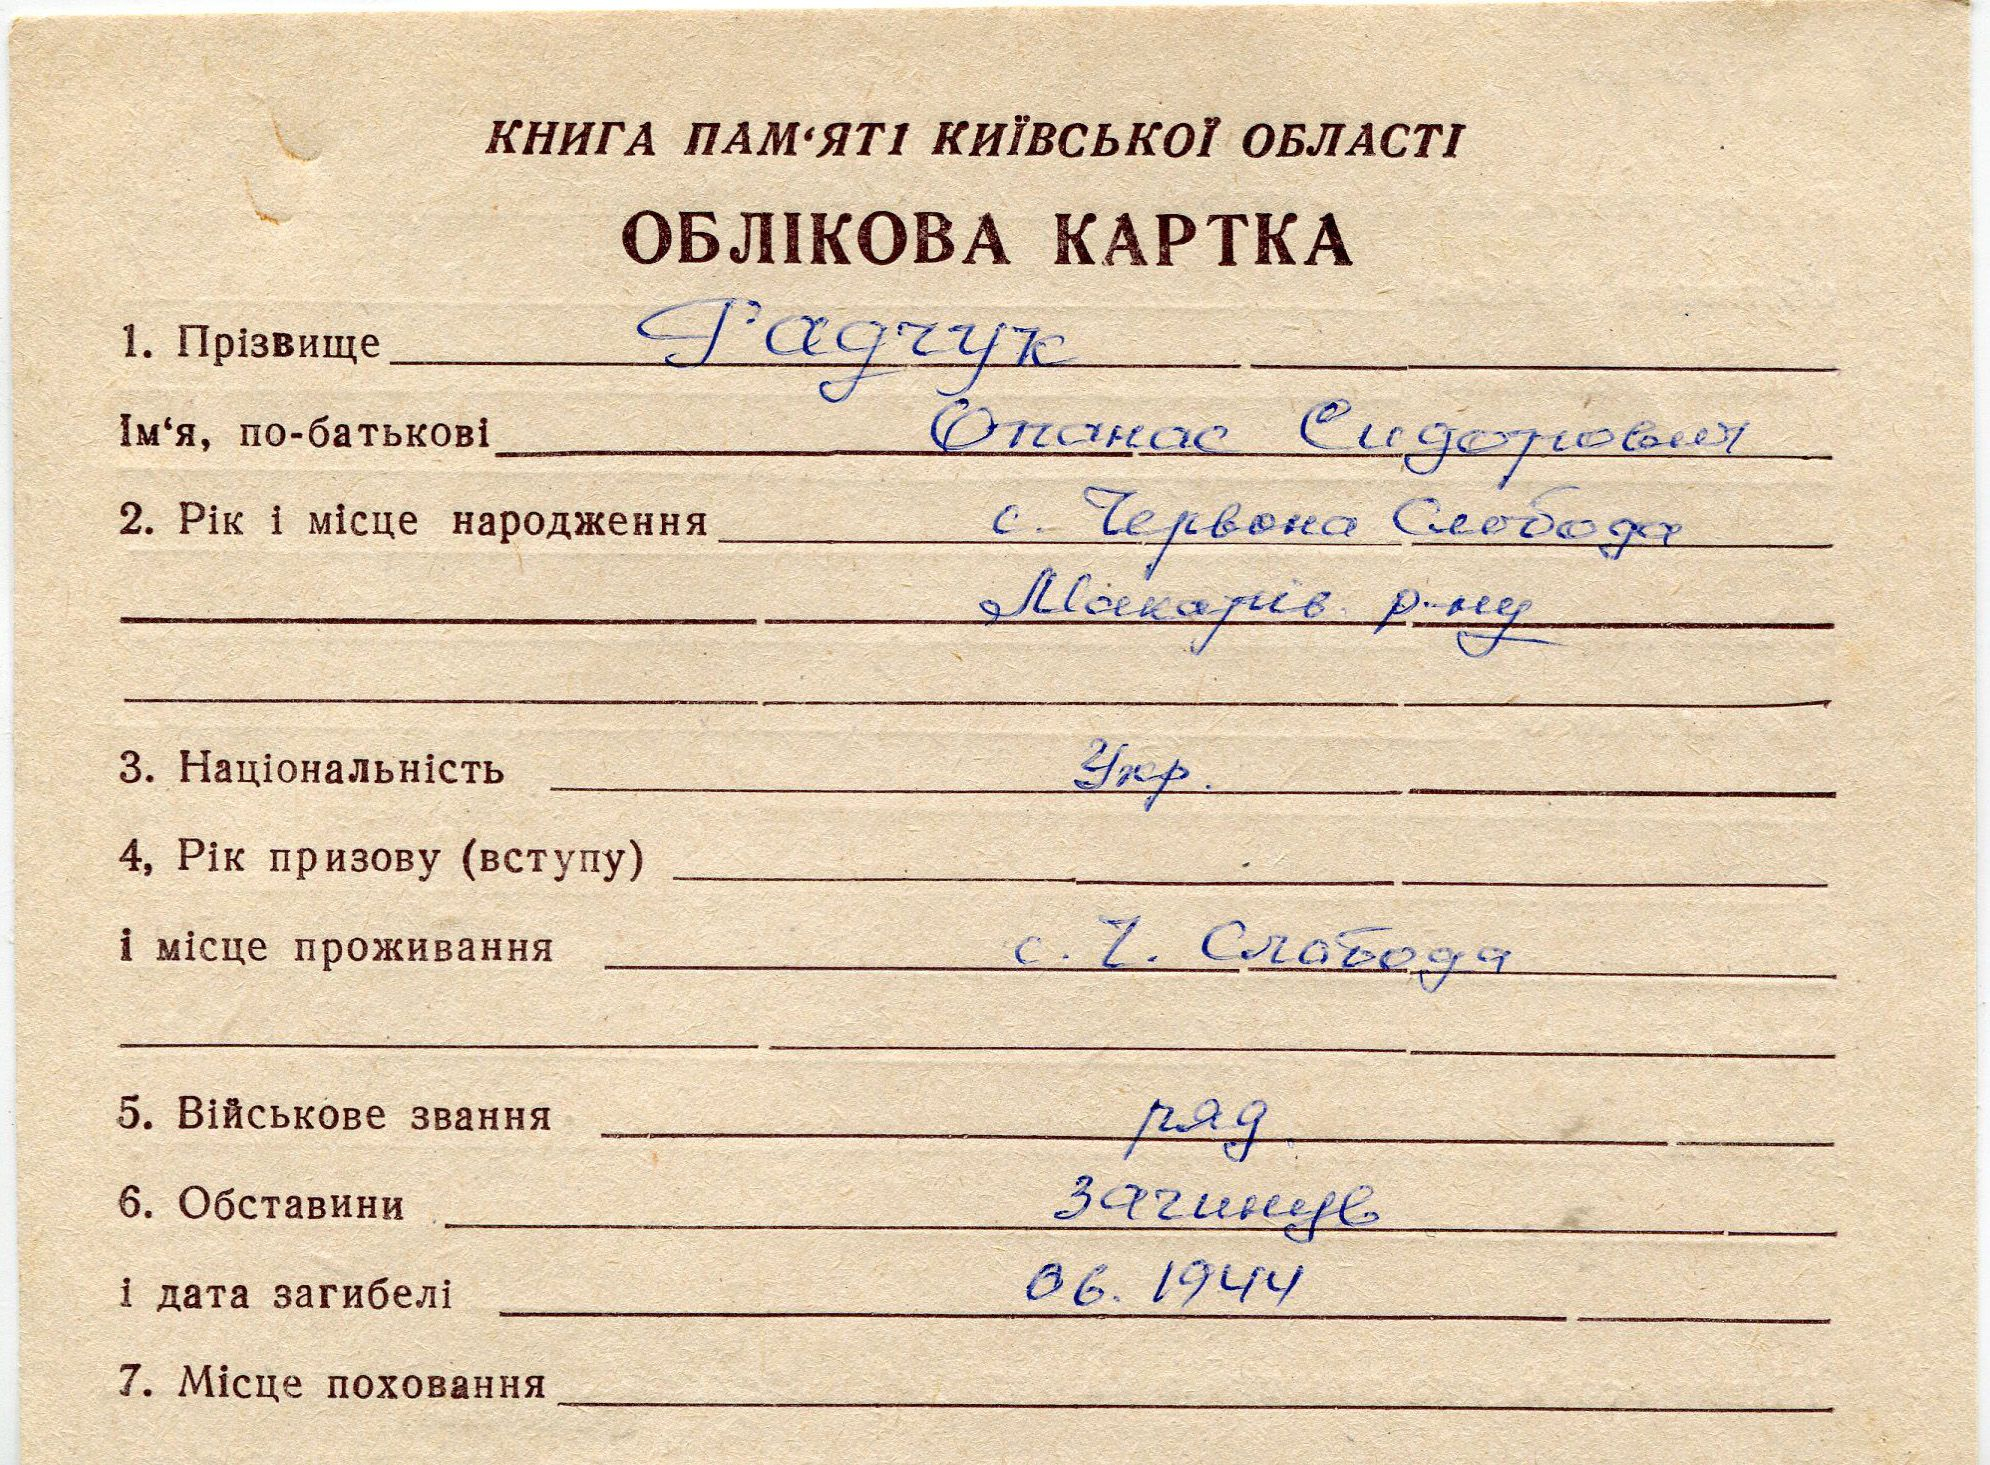 КНИГА ПАМ‘ЯТІ КИЇВСЬКОЇ ОБЛАСТІ
ОБЛІКОВА КАРТКА
1. Прізвище Радчук
Ім‘я, по-батькові Опанас Сидорович
2. Рік і місце народження с. Червона Слобода
Макарів. р-ну
3. Національність Укр.
4, Рік призову (вступу)
і місце проживання с. Ч. Слобода
5. Військове звання ряд.
6. Обставини загинув
і дата загибелі 06. 1944
7. Місце поховання